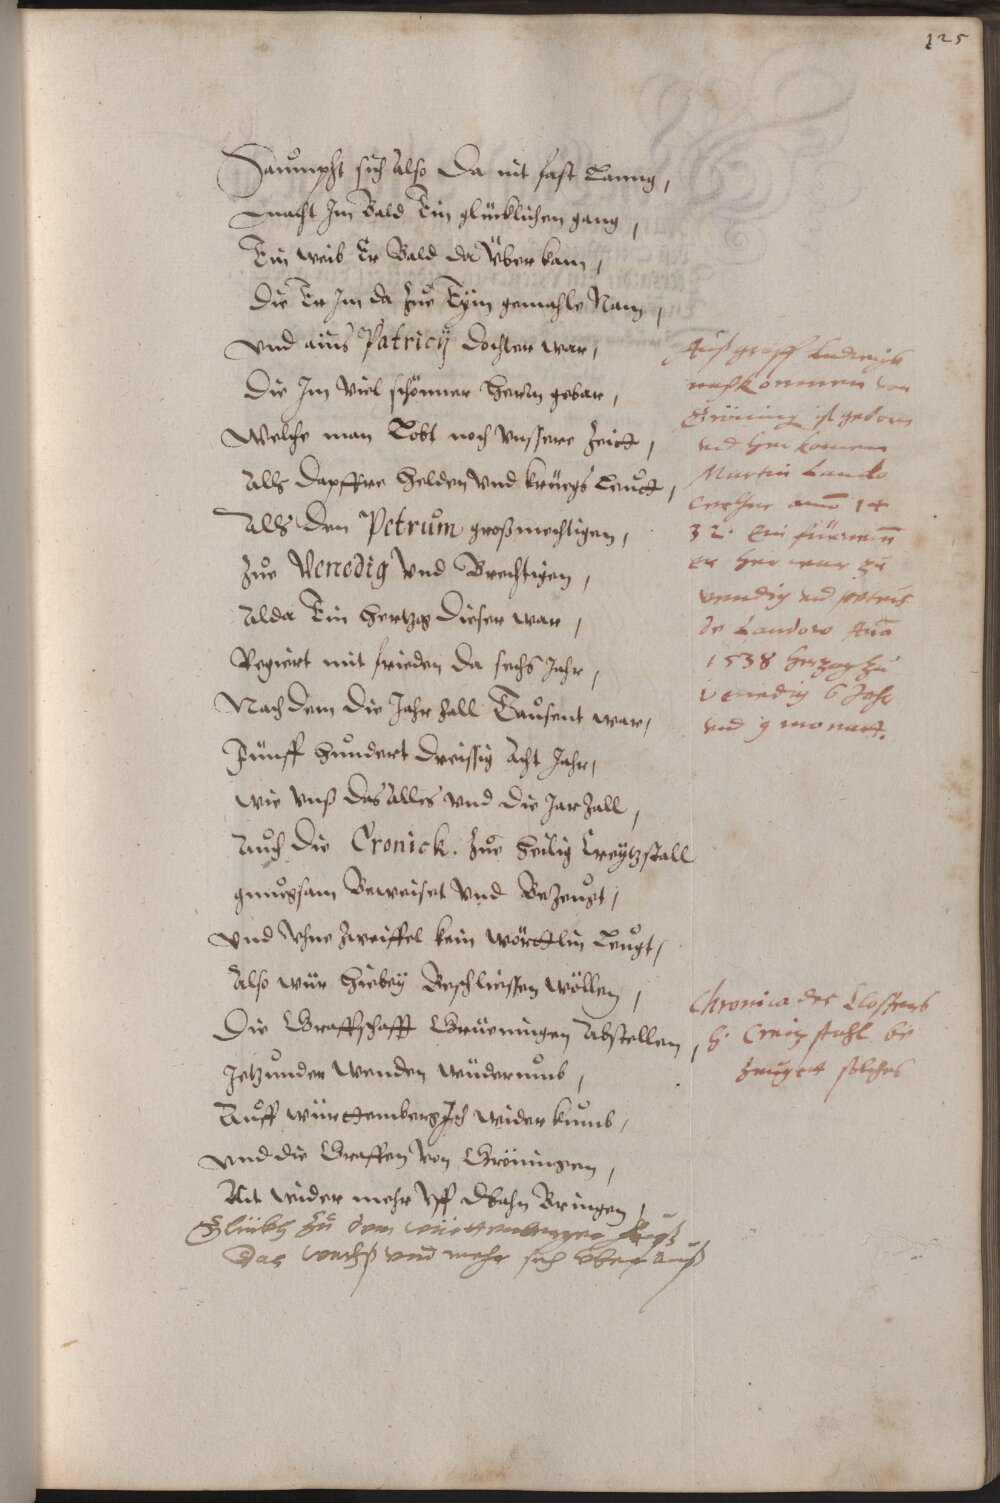 125
Saumpht sich also da nit fast lanng,
macht Im Bald Ein glücklichen gang,
Ein weib Er Bald da Überkam,
die Er Im da zue Eym gemahle Nam,
vnd ains Patricij dochter war,
die Im viel schönner herrn gebar,
Welche man Lobt noch vnssere Zeitt,
Alls dapffre helden vnd kriegs Leutt,
Alls den Petrum großmechtigen,
Zue Venedig vnd Brechtigen,
Alda Ein hertzog dieser war,
Regiert mit frieden da sechs Jahr,
Nach dem die Jahr zall Tausent war,
Fünff hundert dreissig Acht Jahr,
wie vnß das Alles vnd die Jar zall,
Auch die Cronick. zue heilig Creytzstall
gnugsam Beweiset vnd Bezeugt,
vnd ohne zweiffel kein wörttlin leugt,
Also wür hiebey Beschliessen wöllen,
Die Graffschafft Grüeningen Abstellen,
Jetzunder wenden widerumb,
Auff württemberg Ich wider kumb,
vnd die Graffen von Gröningen,
Nit wider mehr vff dbahn Bringen,
Glückh zu dem württemberger
das wachß vnd mehr sich über auß
Auß graff Ludwigs
nachkommen von
Gröning ist geborn
vnd her komen
Martin Lando
anno 14
32. Ein fürnem
er her war zu
venedig vnd petrus
de Landow Ano
1538 herzog zu
venedig 6 Jahr
vnd 9 monatt.
Chronica des Closters
h. Creitz stahl be
zeugett solches